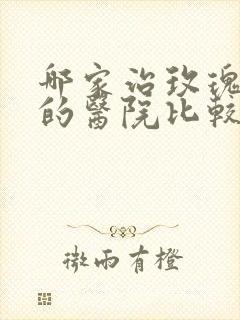 哪家治玫瑰
的醫院比較
微雨有橙